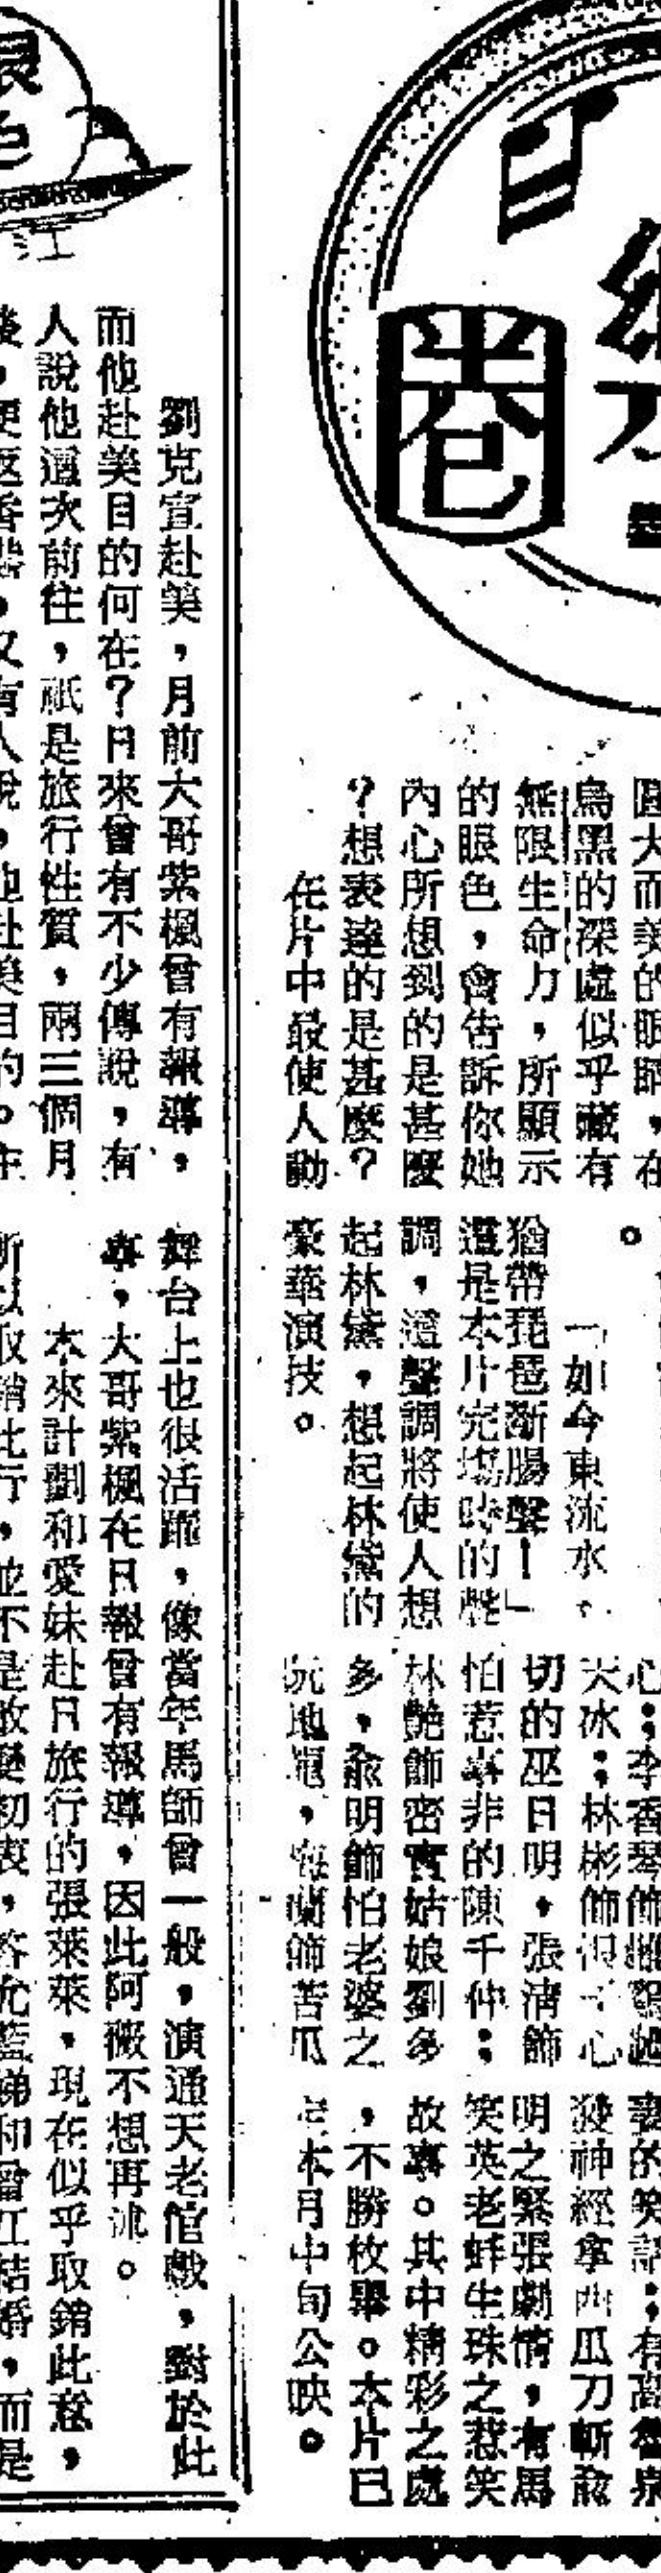 圓大而美的眼睛，在
烏黑的深處似乎藏有
無限生命力，所顯示
的眼色，會告訴你她
內心所想到的是甚麼
？想表達的是甚麼？
在片中最使人動
。
「如今東流水，
猶帶琵琶斷腸聲！」
這是本片完塲時的聲
調，這聲調將使人想
起林黛，想起林黛的
豪華演技。
心；李香琴飾
大冰；林彬飾心
切的巫日明，張清飾
怕惹事非的陳千仲；
林艷飾密實姑娘劉多
多，兪明飾怕老婆之
玩地龍，梅蘭飾苦瓜
妻的笑話；有高魯泉
發神經拿西瓜刀斬兪
明之緊張劇情，有馬
笑英老蚌生珠之惹笑
故事。其中精彩之處
，不勝枚舉。本片已
定本月中旬公映。
半卷
眼色
江
劉克宣赴美，月前大哥紫楓曾有報導，
而他赴美目的何在？日來曾有不少傳說，有
人說他這次前往，祇是旅行性質，兩三個月
後，便返香港，又有人說，他赴美目的。在
舞台上也很活躍，像當年馬師曾一般，演通天老倌戲，對於此
事，大哥紫楓在日報曾有報導，因此阿薇不想再述。
本來計劃和愛妹赴日旅行的張萊萊，現在似乎取銷此意，
所以取銷此行，並不是改變初衷，答允藍娣和曾江結婚，而是